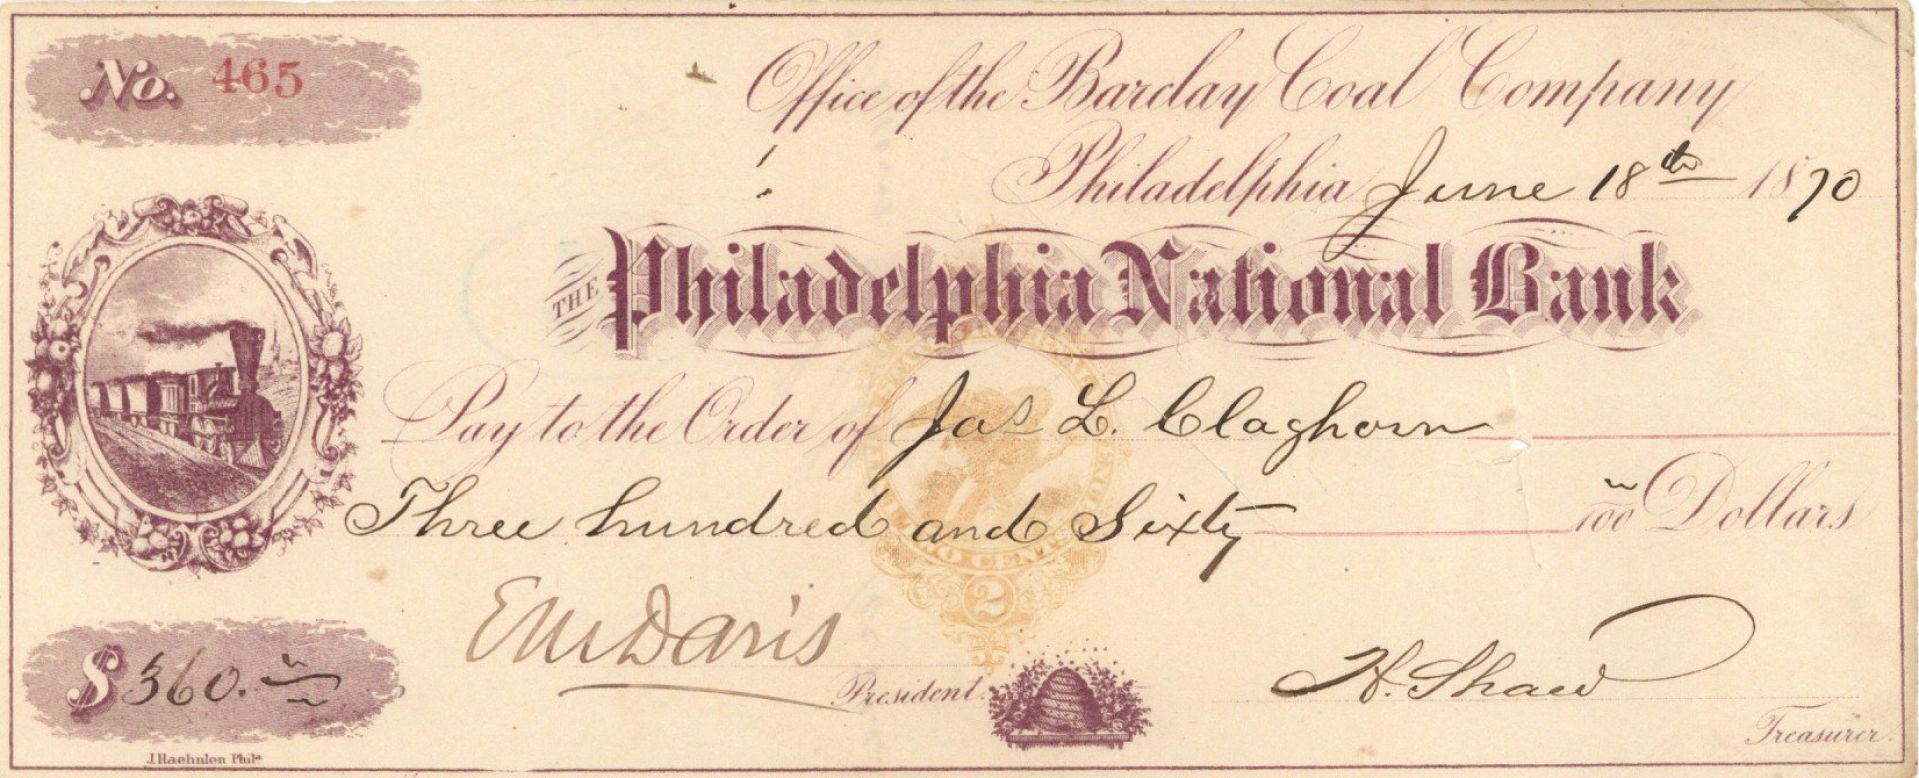 No. 465
Office of the Barclay Coal Company
Philadelphia June 18th 1870
THE Philadelphia National Bank
Pay to the Order of Jas L. Claghorn
Three hundred and Sixty /100 Dollars
TWO CENTS
2
E M Davis President.
H. Shaw Treasurer.
$ 360.
J Haehnlen Phila